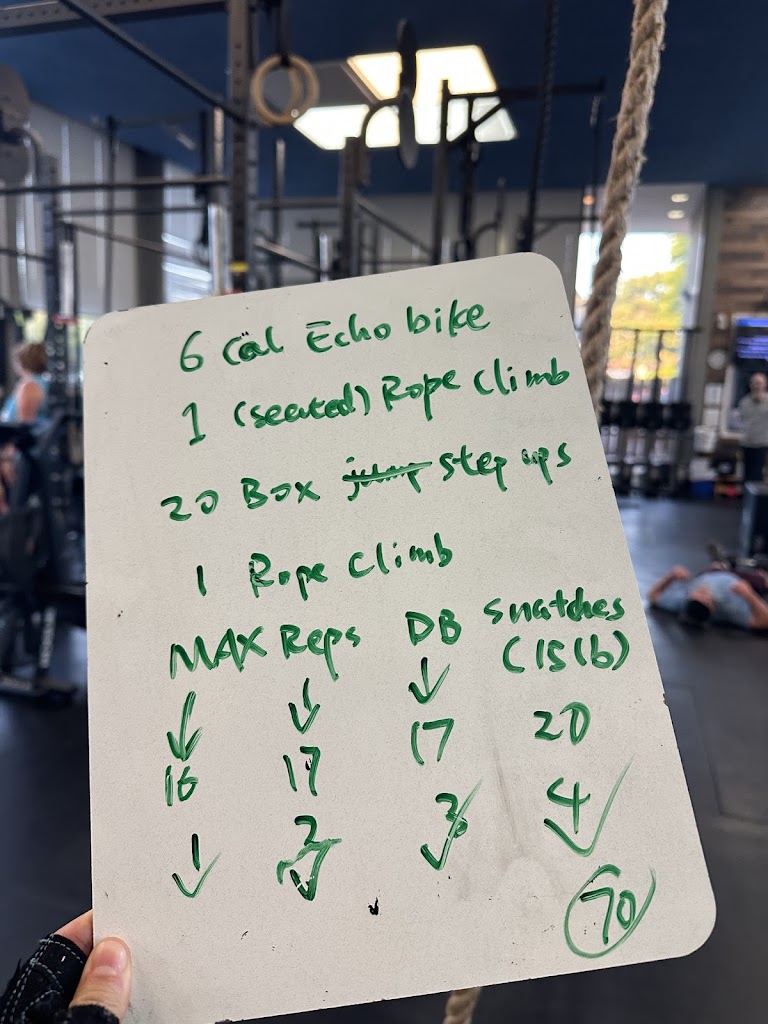 6 Cal Echo bike
1 (seated) Rope Climb
20 Box jump step ups
1 Rope Climb
MAX Reps DB snatches
(15lb)
16 17 17 20
1 2 3 4
70